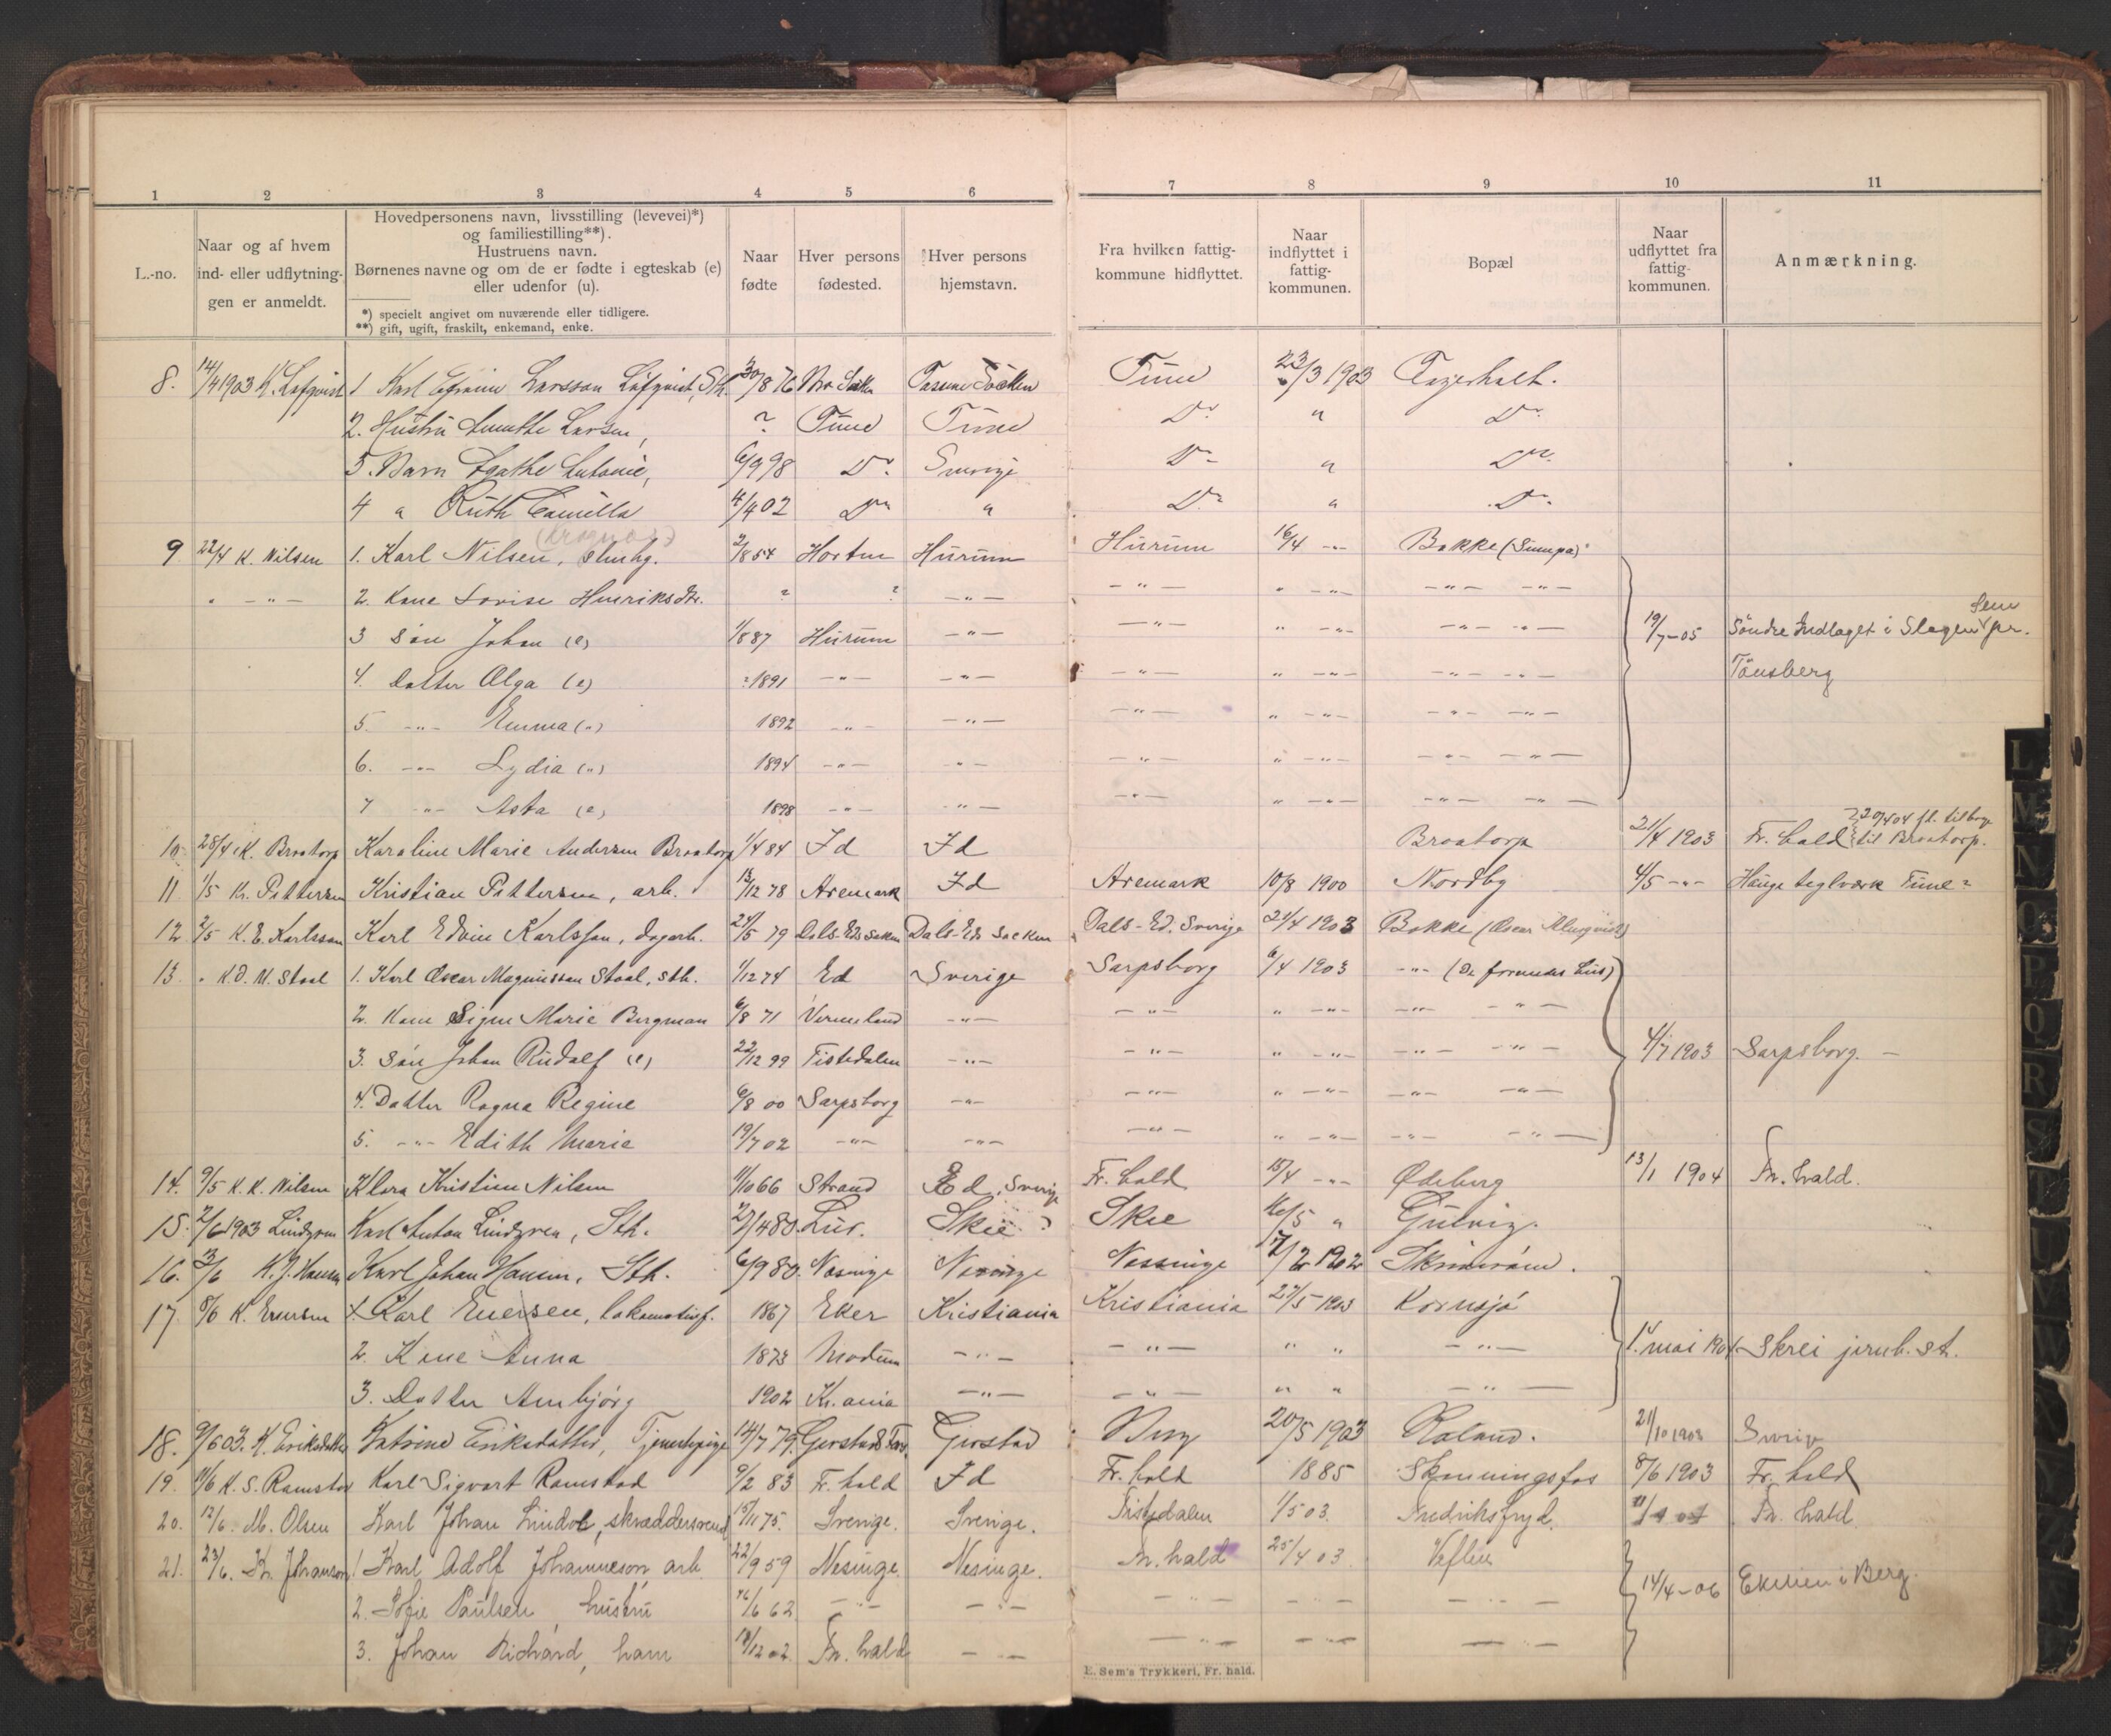 1 2 3 4 5 6 7 8 9 10 11
L.-no.
Naar og af hvem ind- eller udflytningen er anmeldt.
Hovedpersonens navn, livsstilling (levevei)*) og familiestilling**).
Hustruens navn.
Børnenes navne og om de er fødte i egteskab (e) eller udenfor (u).
*) specielt angivet om nuværende eller tidligere.
**) gift, ugift, fraskilt, enkemand, enke.
Naar fødte
Hver persons fødested.
Hver persons hjemstavn.
Fra hvilken fattigkommune hidflyttet.
Naar indflyttet i fattigkommunen.
Bopæl
Naar udflyttet fra fattigkommunen.
Anmærkning.
8. 14/4 1903 K. Løfqvist 1 Karl Larsson Löfqvist, Sth. 30/8 76 Socken Tune 23/3 1903
2. Hustru Larsen, ? Tune Tune Do " Do
3. Barn Agathe 6/9 98 Do Sverige Do " Do
4 " Ruth Camilla 4/4 02 Do " Do " Do
9 22/4 K. Nilsen 1. Karl Nilsen, stenhg. 2/8 54 Horten Hurum Hurum 16/4 -"- Bakke (Sumpa)
" -"- 2. Kone Lovise Henriksdtr. ? ? -"- -"- " -"- -"- -"-
3 Søn Johan (e) 1/8 87 Hurum -"- -"- " -"- -"- -"- 19/7-05 Söndre Indlaget i Slagen Sem pr.
4. Datter Olga (e) ? 1891 -"- -"- -"- " -"- -"- -"- Tönsberg
5. -"- Emma (") 1892 -"- -"- -"- " -"- -"- -"-
6. -"- Lydia (") 1894 -"- -"- -"- " -"- -"- -"-
7 -"- Asta (e) 1898 -"- -"- -"- " -"- -"- -"-
10. 28/4 K. Braatorp Karoline Marie Andersen Braatorp 1/4 84 Id Id Braatorp 21/4 1903 Fr. hald 20/4 04 fl. tilbage til Braatorp.
11 1/5 Kr. Pettersen Kristian Pettersen, arb. 13/12 78 Aremark Id Aremark 10/8 1900 Nordby 4/5 -"- Hauge teglværk Tune ?
12 2/5 K. E. Karlsson Karl Edvin Karlsson, dagarb. 21/5 79 Dals-Eds socken Dals-Eds Socken Dals-Ed. Sverige 21/4 1903 Bakke (Oscar Almqvist)
13. " K.O.M. Staal 1. Karl Oscar Magnusson Staal, sth. 1/12 74 Ed Sverige Sarpsborg 6/4 1903 -"-
2. Kone Signe Marie Bergman 6/8 71 Vermeland -"- -"- " -"- -"- -"-
3. Søn Johan Rudolf (e) 22/12 99 Tistedalen -"- -"- " -"- -"- -"- 4/7 1903 Sarpsborg. -
4. Datter Ragna Regine 6/8 00 Sarpsborg -"- -"- " -"- -"- -"-
5. -"- Edith Marie 19/7 02 -"- -"- -"- " -"- -"- -"-
14. 9/5 K. K. Nilsen Klara Kristine Nilsen 11/10 66 Strand Ed, Sverige Fr. hald 15/4 -"- Ødeberg 13/1 1904 Fr. hald.
15. 2/6 1903 Lindgren Karl Anton Lindgren, Sth. Lur. Skee ? Skee 16/5 "
16. 13/6 K. J. Hansen Karl Johan Hansen, Sth. 6/9 80. Nasinge Nasinge Nessinge 17/2 1902
17. 8/6 K. Enersen 1. Karl Enersen, lokomotivf. 1867 Eker Kristiania Kristiania 27/5 1903 Kornsjø
2. Kone Anna 1873 Modum -"- -"- " " -"- 1. mai 1904 Skrei jernb. st.
3. Datter Arnbjörg 1902 Kr.ania -"- -"- " " -"-
18. 9/6 03. K. Eriksdatter Katrine Eriksdatter, Tjenestepige 14/7 79. Gjerstad Berg 20/5 1903 21/10 1903 Sverige
19. 11/6 K. S. Ramstad Karl Sigvart Ramstad 9/2 83 Fr. hald Id Fr. hald 1885 Skonningsfos 8/6 1903 Fr. hald
20. 12/6. M. Olsen Karl Johan Lindoe, skræddersvend 15/11 75. Sverige. Sverige. Tistedalen 1/5 03. Fredriksfryd. Fr. hald
21. 23/6. Johanson 1 Karl Adolf Johanneson, arb. 22/9 59 Nesinge. Nesinge. Fr. hald 25/4 03
2. Sofie Paulsen, hustru 16/6 62 -"- -"- -"- -"- -"- 14/4-06 Ekelien i Berg.
3. Johan Richard, barn 18/12 02. Fr. hald -"- -"- -"- -"-
E. Sem's Trykkeri, Fr. hald.
L M N O P Q R S